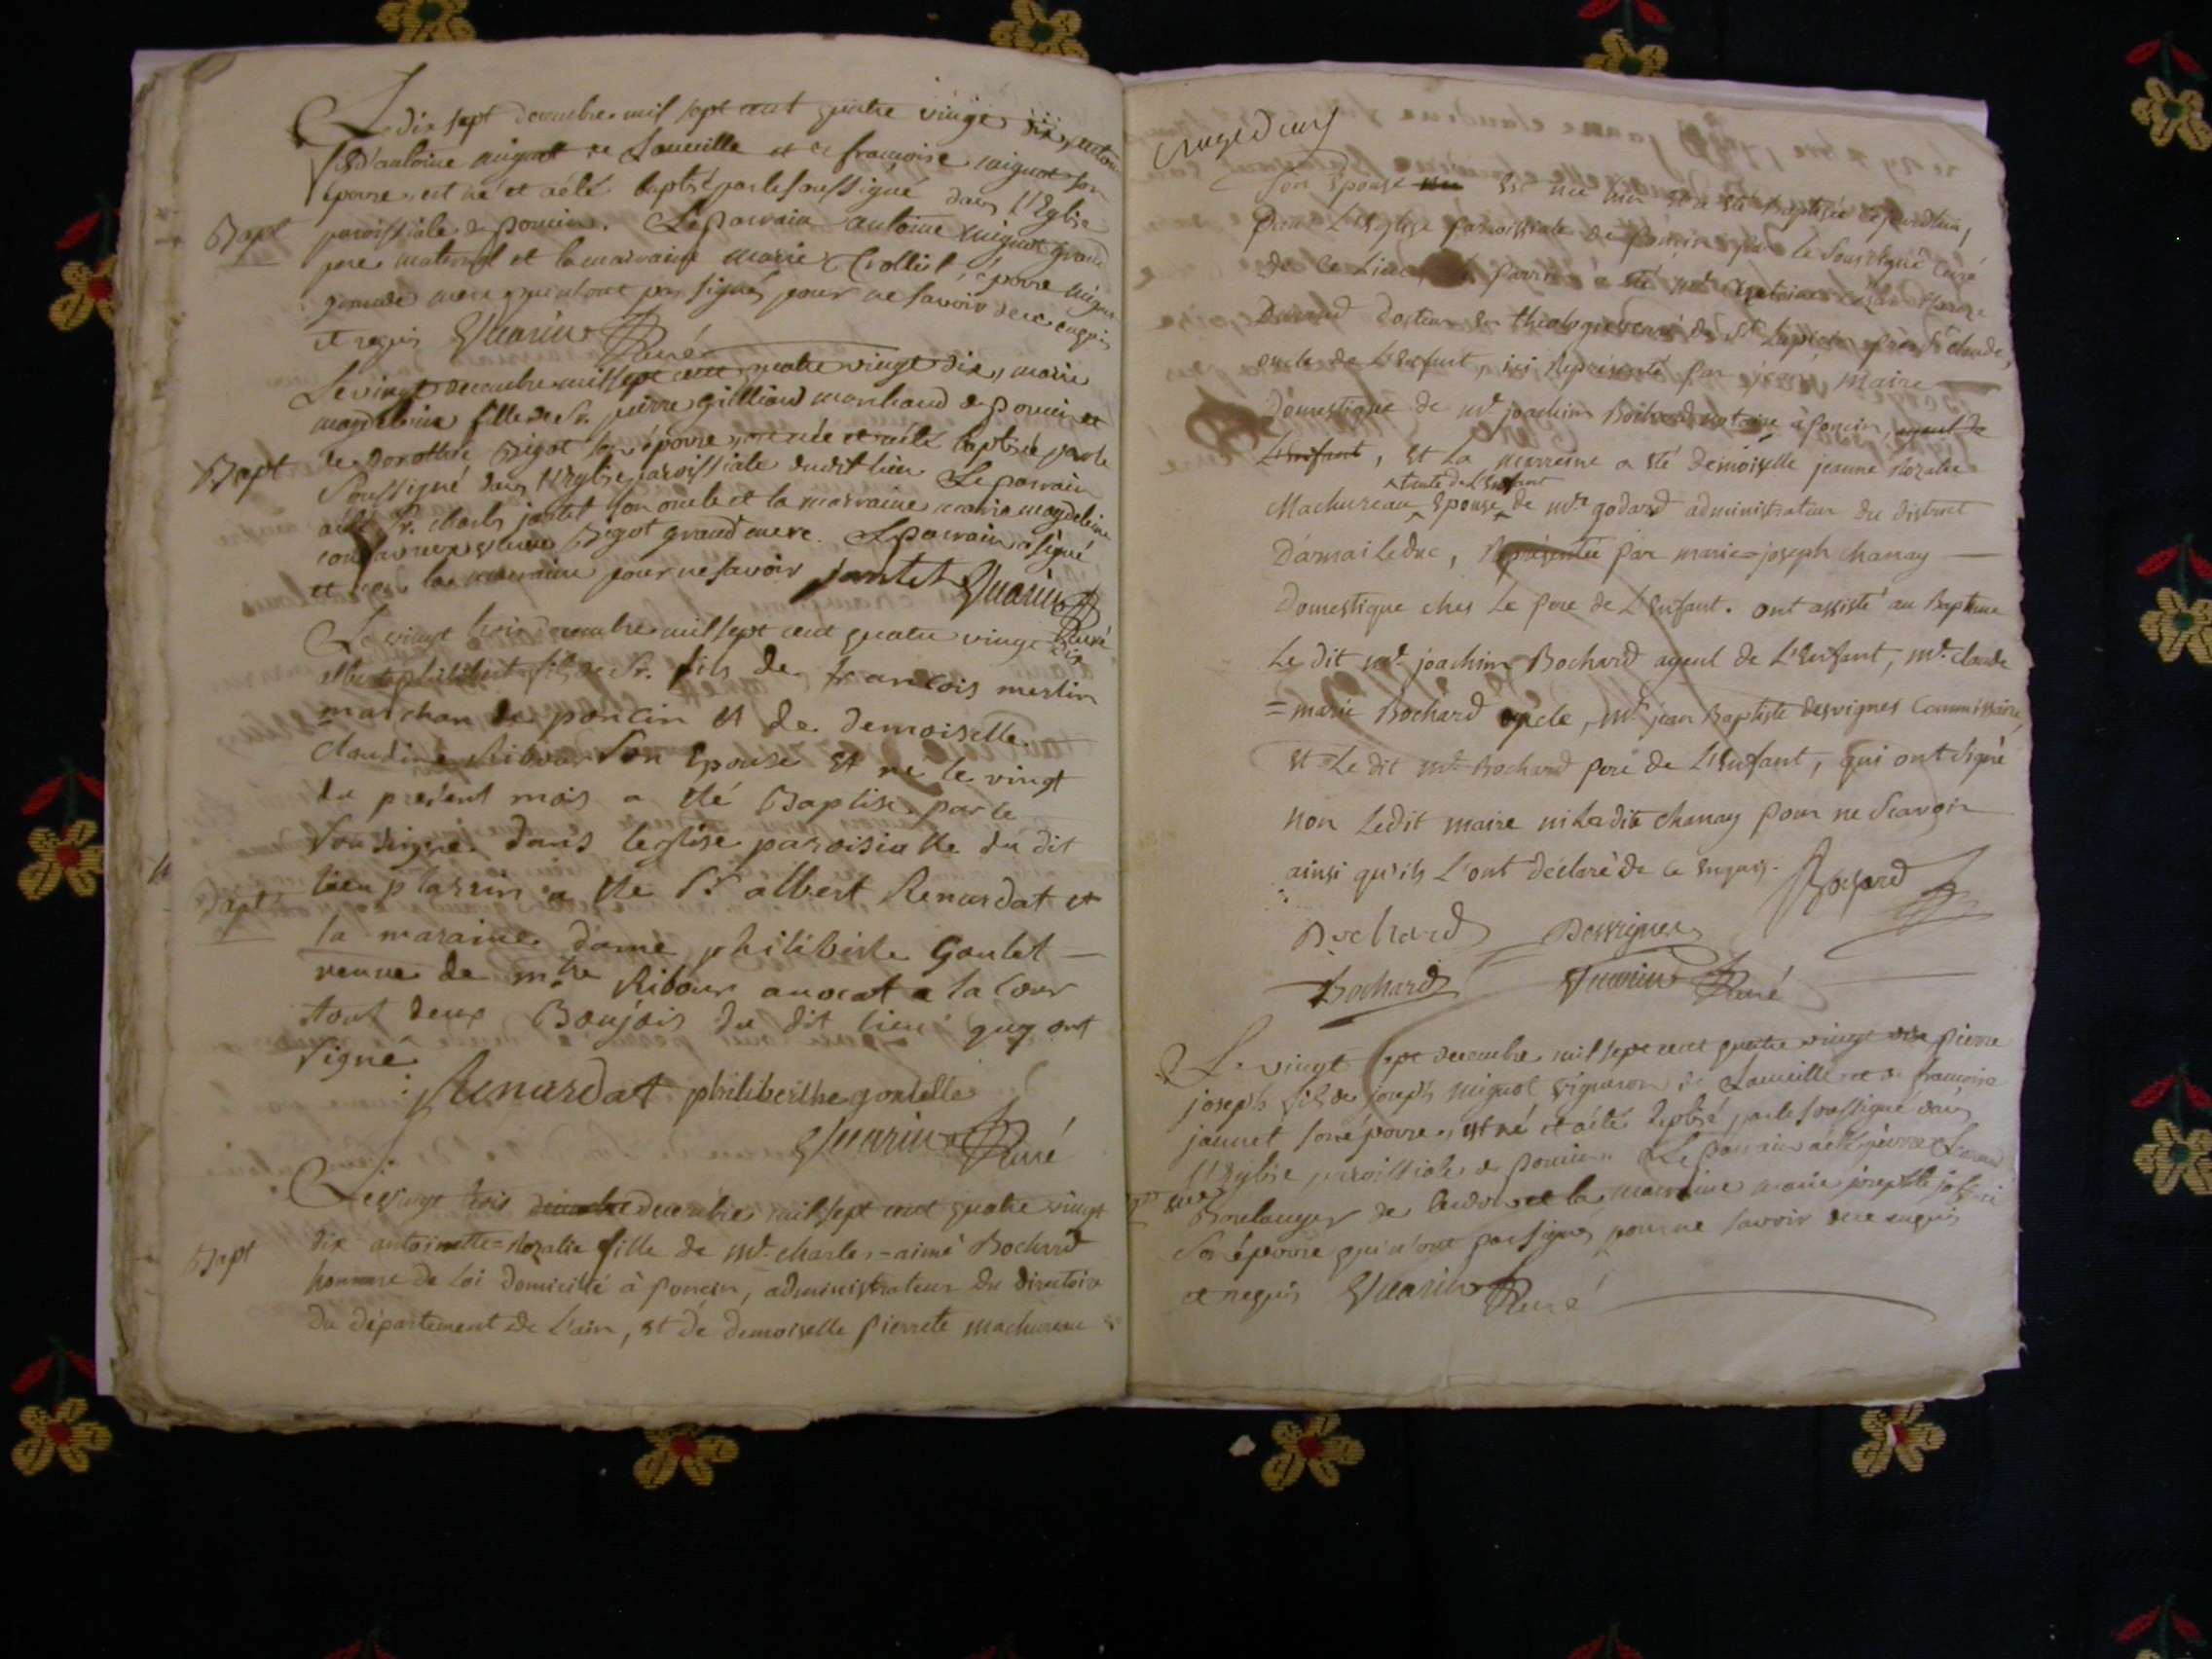 Le dix sept decembre mil sept cent quatre vingt dix, antoine
fils d'antoine mignot de Lameville et de francoise mignot son
epouse, est né et a été baptisé par le soussigné dans l'Eglise
Bapt
paroissiale de poncin. Le parrain antoine mignot grand
pere maternel et la marraine marie Crollet, epouse mignot
grande mere qui n'ont pas signés pour ne savoir de ce enquis
et requis Guarin Curé
Le vingt decembre mil sept cent quatre vingt dix, marie
magdeleine fille de Sr. pierre gilliand marchand de poncin et
Bapt
de dorothée Bigot son épouse, est née et a été baptisée par le
Soussigné dans l'Eglise paroissiale dudit lieu Le parrain
a été Sr. charles jantet son oncle et la marraine marie magdeleine
veuve Bigot grand mere. Le parrain a signé
et non la marraine pour ne savoir jantet Guarin
Curé
Le vingt trois decembre mil sept cent quatre vingt dix
albert philibert fils de Sr. fils de francois merlin
marchan de poncin et de demoiselle
Claudine Ribour Son Epouse et ne le vingt
du present mois a été Baptise par le
Sousigne dans leglise paroisialle du dit
Bapt
lieu p lasrin a été Sr albert Renardat et
la maraine dame philiberte Goutel
veuve de mtre Ribour auocat a la Cour
tout deux Boujois du dit lieu quy ont
signé
Renardat philiberthe goutelle
Guarin Curé
Le vingt trois decembre decembre mil sept cent quatre vingt
Bapt
dix antoinette=rozalie fille de Mr. charles=aimé Bochard
homme de loi domicilié à poncin, administrateur du directoire
du département de l'ain, et de demoiselle pierrete machureau
Son Epouse est née hier et a été Baptisée aujourd'hui,
dans L'Eglise paroissiale de poncin par le Soussigné Curé
de ce Lieu, parrin a été mr antoine
Durand docteur en theologie curé de St
oncle de L'Enfant, ici Représenté par maire
Domestique de mr. joachim Bochard notaire à poncin, ayeul de
L'Enfant, et La marreine a été demoiselle jeanne rozalie
tante de L'Enfant
Machureau Epouse de mr. godard administrateur du district
D'arnai Le duc, Représentée par marie=joseph chanay
Domestique ches Le pere de L'Enfant. ont assisté au Baptême
Le dit mr. joachim Bochard ayeul de L'Enfant, mr. claude
=marie Bochard oncle, mr. jean Baptiste desvignes Commissaire,
et Le dit mr. Bochard pere de L'Enfant, qui ont signé
non Ledit maire ni Ladite chanay pour ne Scavoir
ainsi qu'ils L'ont déclaré de ce Enquis. Bochard
Bochard Desvignes
Bochard Guarin Curé
Le vingt sept decembre mil sept cent quatre vingt dix pierre
joseph fils de joseph mignot vigneron de Lameville et de francoise
jannet son épouse, est né et a été baptisé par le soussigné dans
l'Eglise paroissiale de poncin. Le parrain a été pierre
Boulanger de et la marraine marie josephte
Son épouse qui n'ont pas signés pour ne savoir de ce enquis
et requis Guarin Curé